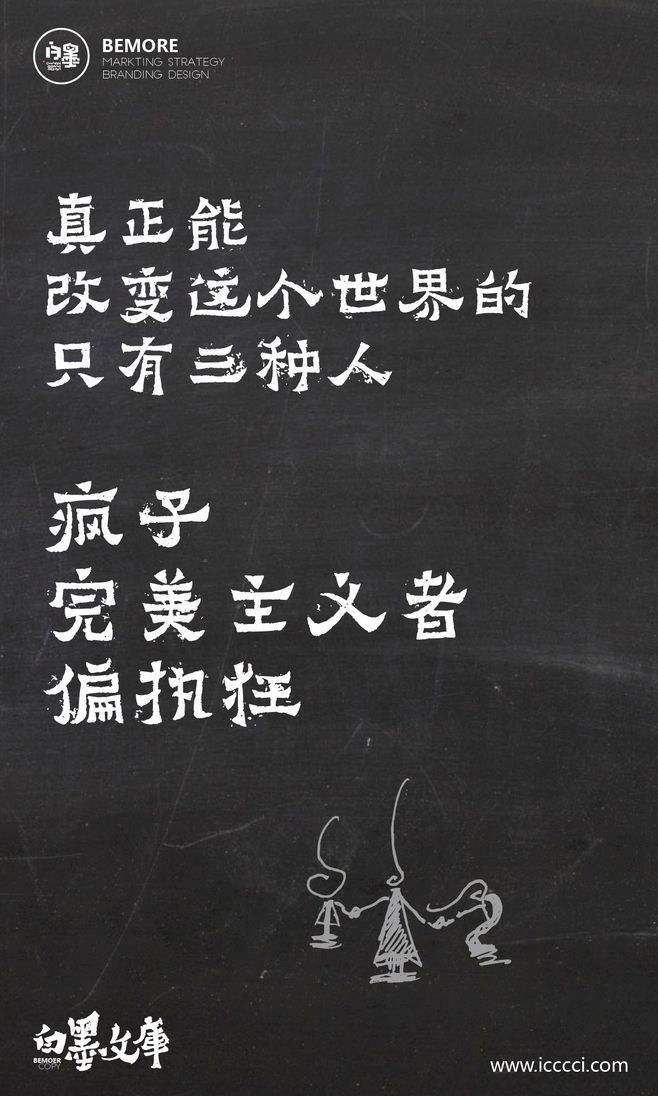 白墨
BEMORE
MARKTING STRATEGY
BRANDING DESIGN
真正能
改变这个世界的
只有三种人
疯子
完美主义者
偏执狂
白墨文庫
BEMOER
COPY
www.icccci.com